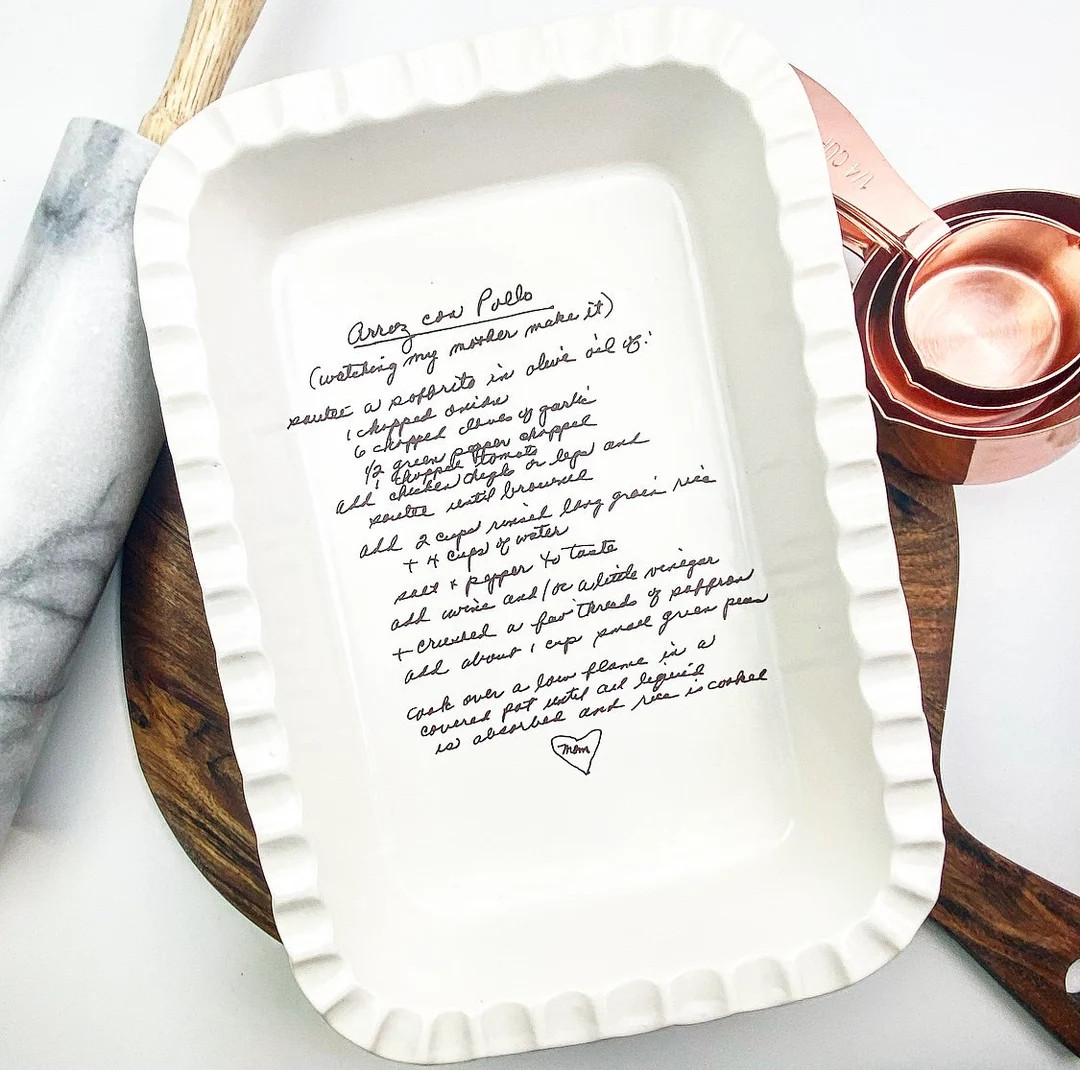 Arroz con Pollo
(watching my mother make it)
sauteé a soffrito in olive oil of:
1 chopped onion
6 chopped cloves of garlic
1/2 green pepper chopped
1 chopped tomato
add chicken thighs or legs and
sauteé until browned
add 2 cups rinsed long grain rice
+ 4 cups of water
salt + pepper to taste
add wine and/or a little vinegar
+ crushed a few threads of saffron
add about 1 cup small green peas
cook over a low flame in a
covered pot until all liquid
is absorbed and rice is cooked
Mom
1/4 CUP